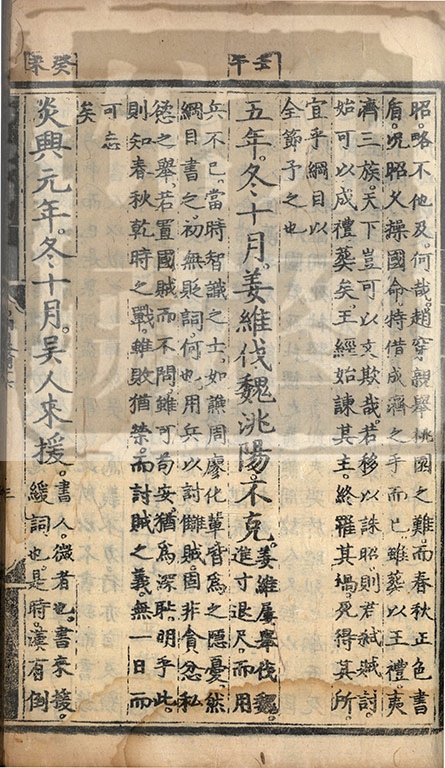 壬午
癸未
昭略不他及何哉趙穿親舉桃園之難而春秋正色書
盾況昭久操國命特借成濟之手而已雖葬以王禮夷
濟三族天下豈可以文欺哉若移以誅昭則君弒賊討
始可以成禮葬矣王經始諫其主終罹其禍死得其所
宜乎綱目以
全節予之也
五年。冬十月。姜維伐魏洮陽。不克。姜維屢舉伐魏。
進寸退尺。而用
兵不已。當時智識之士。如譙周廖化輩皆為之隱憂。然
綱目書之初無貶詞何也。用兵以討讎賊固非貪忿私
德之舉。若置國賊而不問雖可苟安。猶為深恥。明乎此。
則知春秋乾時之戰。雖敗猶榮。而討賊之義。無一日而
可忘
矣
炎興元年。冬十月。吳人來援。書人。微者也。書來援。
緩詞也。是時。漢有倒